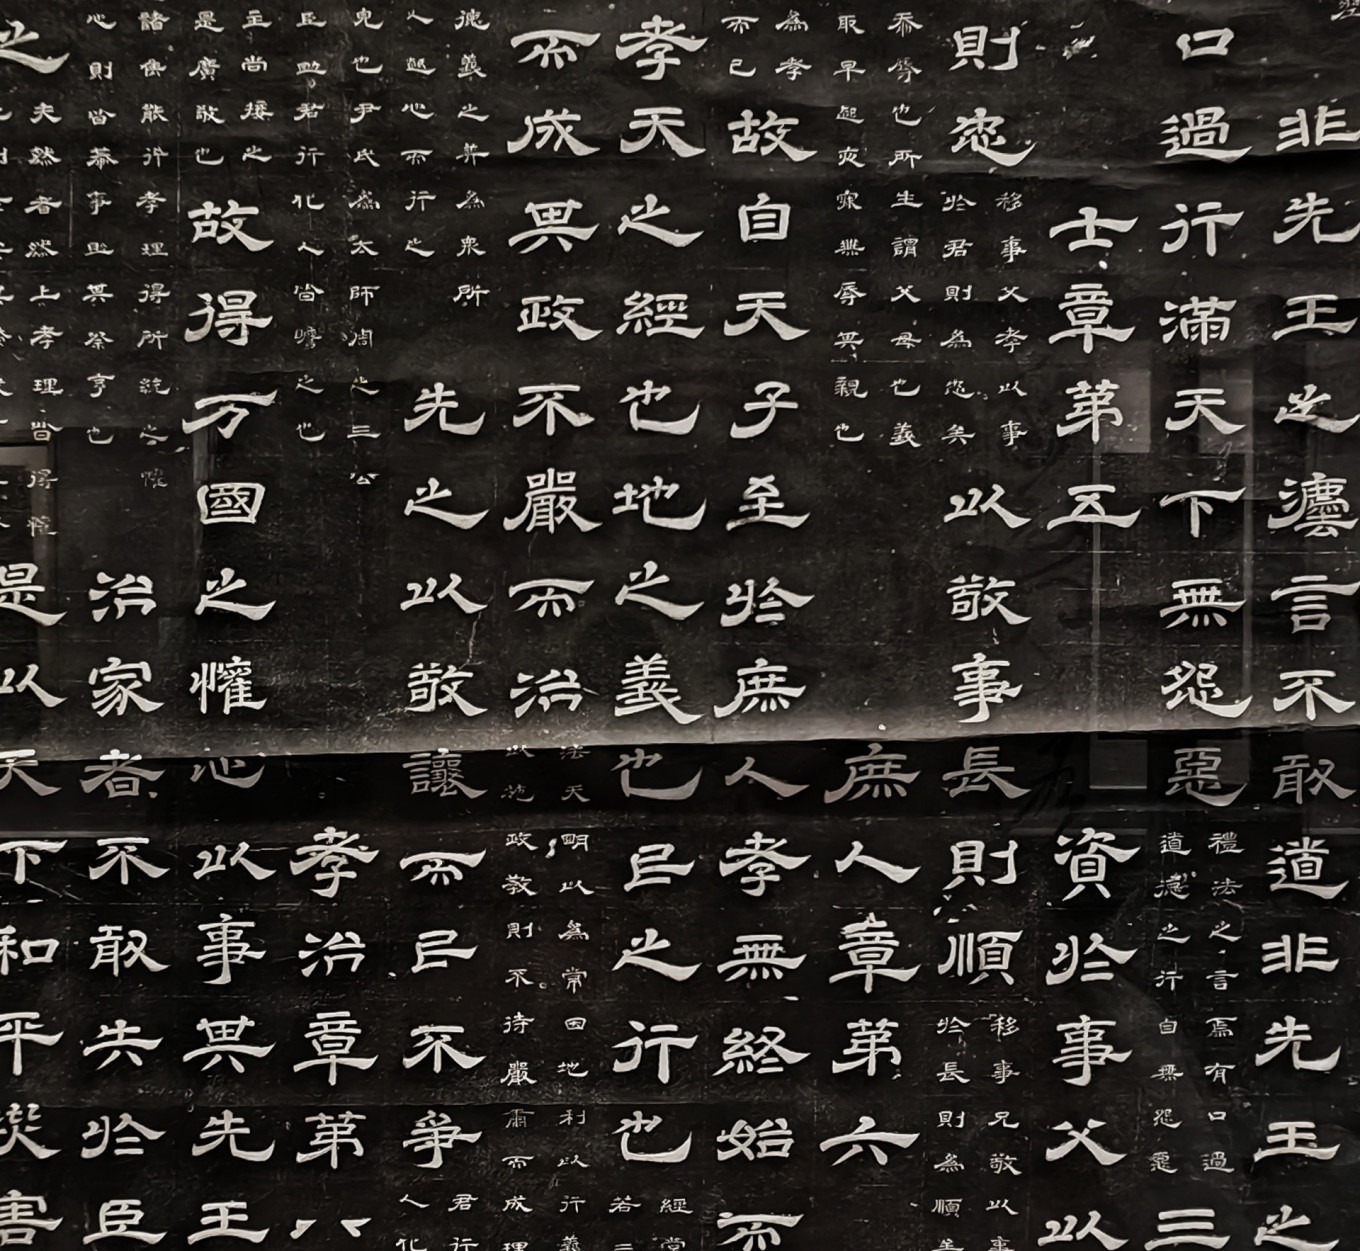 非先王之灋言不敢道非先王之
口過行滿天下無怨惡
禮法之言焉有口過
道德之行自無怨惡
三
士章第五
資於事父以
則忠
移事父孝以事
於君則為忠矣
以敬事長則順
移事兄敬以事
於長則為順矣
忝辱也所生謂父母也義
取早起夜寐無辱其親也
庶人章第六
為孝
而已
故自天子至於庶人孝無終始而
孝天之經也地之義也民之行也
經常
若三
而成其政不嚴而治
法天明以為常因地利以行義
以施政教則不待嚴肅而成理
德義之美為眾所
人起心而行之
先之以敬讓而民不爭
君行
人化
皃也尹氏為太師周之三公
臣助君行化人皆瞻之也
孝治章第
主尚接之
是廣敬也
故得万國之懽心以事其先王
諸侯能行孝理得所統之懽
心則皆恭事助其祭享也
治家者不敢失於臣
之
夫然者然上孝理皆得懽
是以天下和平災害